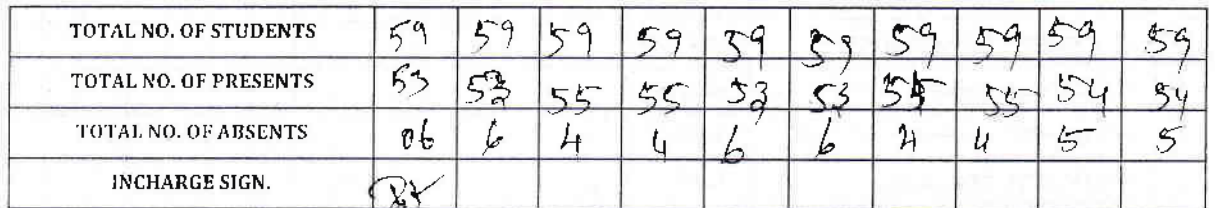 TOTAL NO. OF STUDENTS 59 59 59 59 59 59 59 59 59 59
TOTAL NO. OF PRESENTS 53 53 55 55 53 53 55 55 54 54
TOTAL NO. OF ABSENTS 06 6 4 4 6 6 4 4 5 5
INCHARGE SIGN.